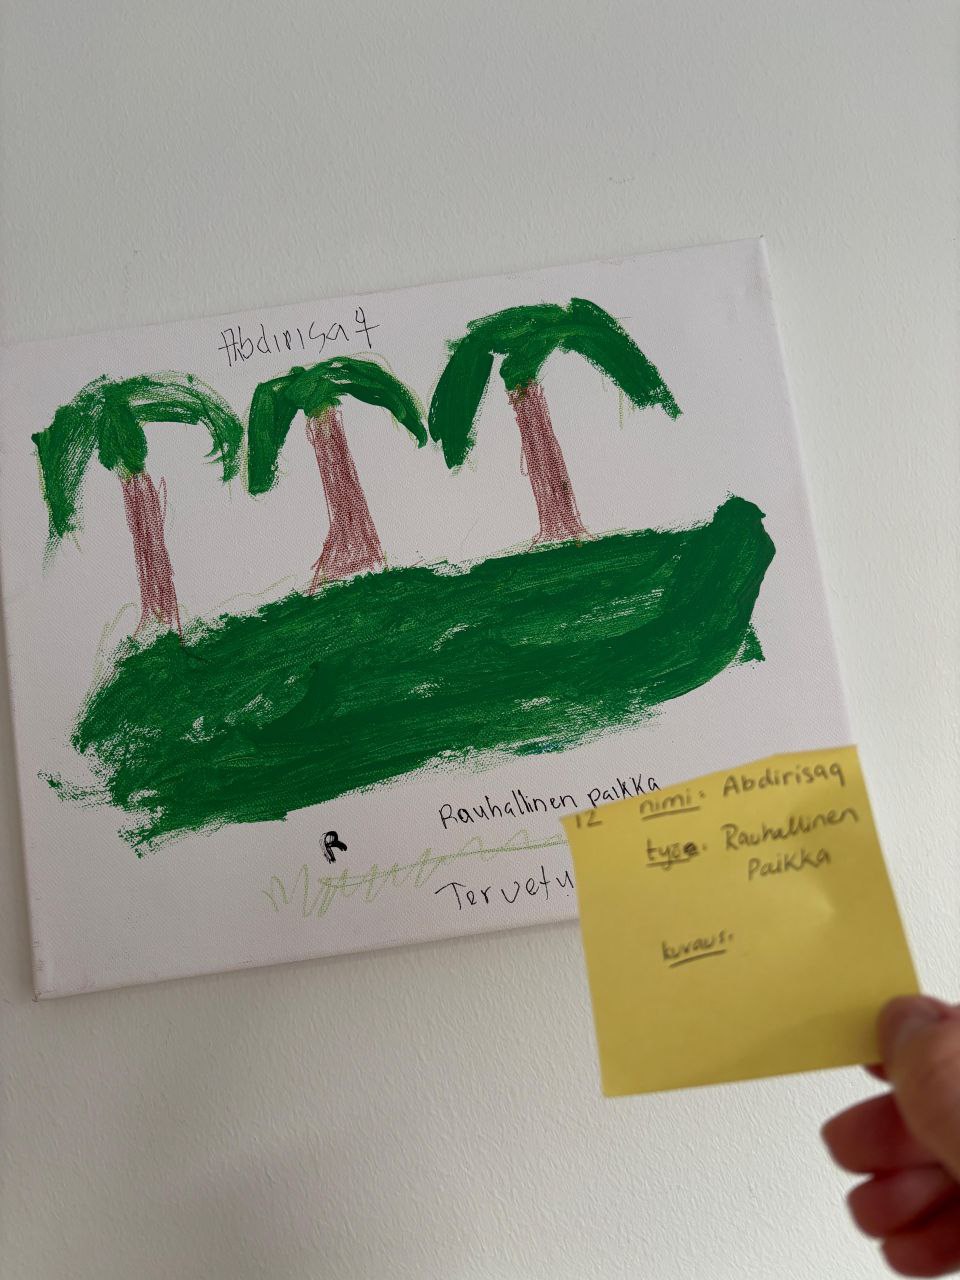 Abdirisaq
Rauhallinen paikka
R
Tervetu
12 nimi: Abdirisaq
työ: Rauhallinen
Paikka
kuvaus: